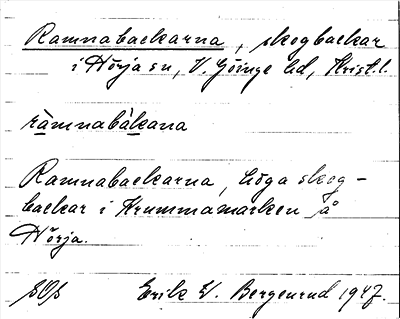 Ramnabackarna, skogbackar
i Nörja sn, V. Göinge hd, Krist. l.
ràmnabàkana
Ramnabackarna, höga skog-
backar i Krummamarken å
Nörja.
Erik W. Bergenrud 1947.